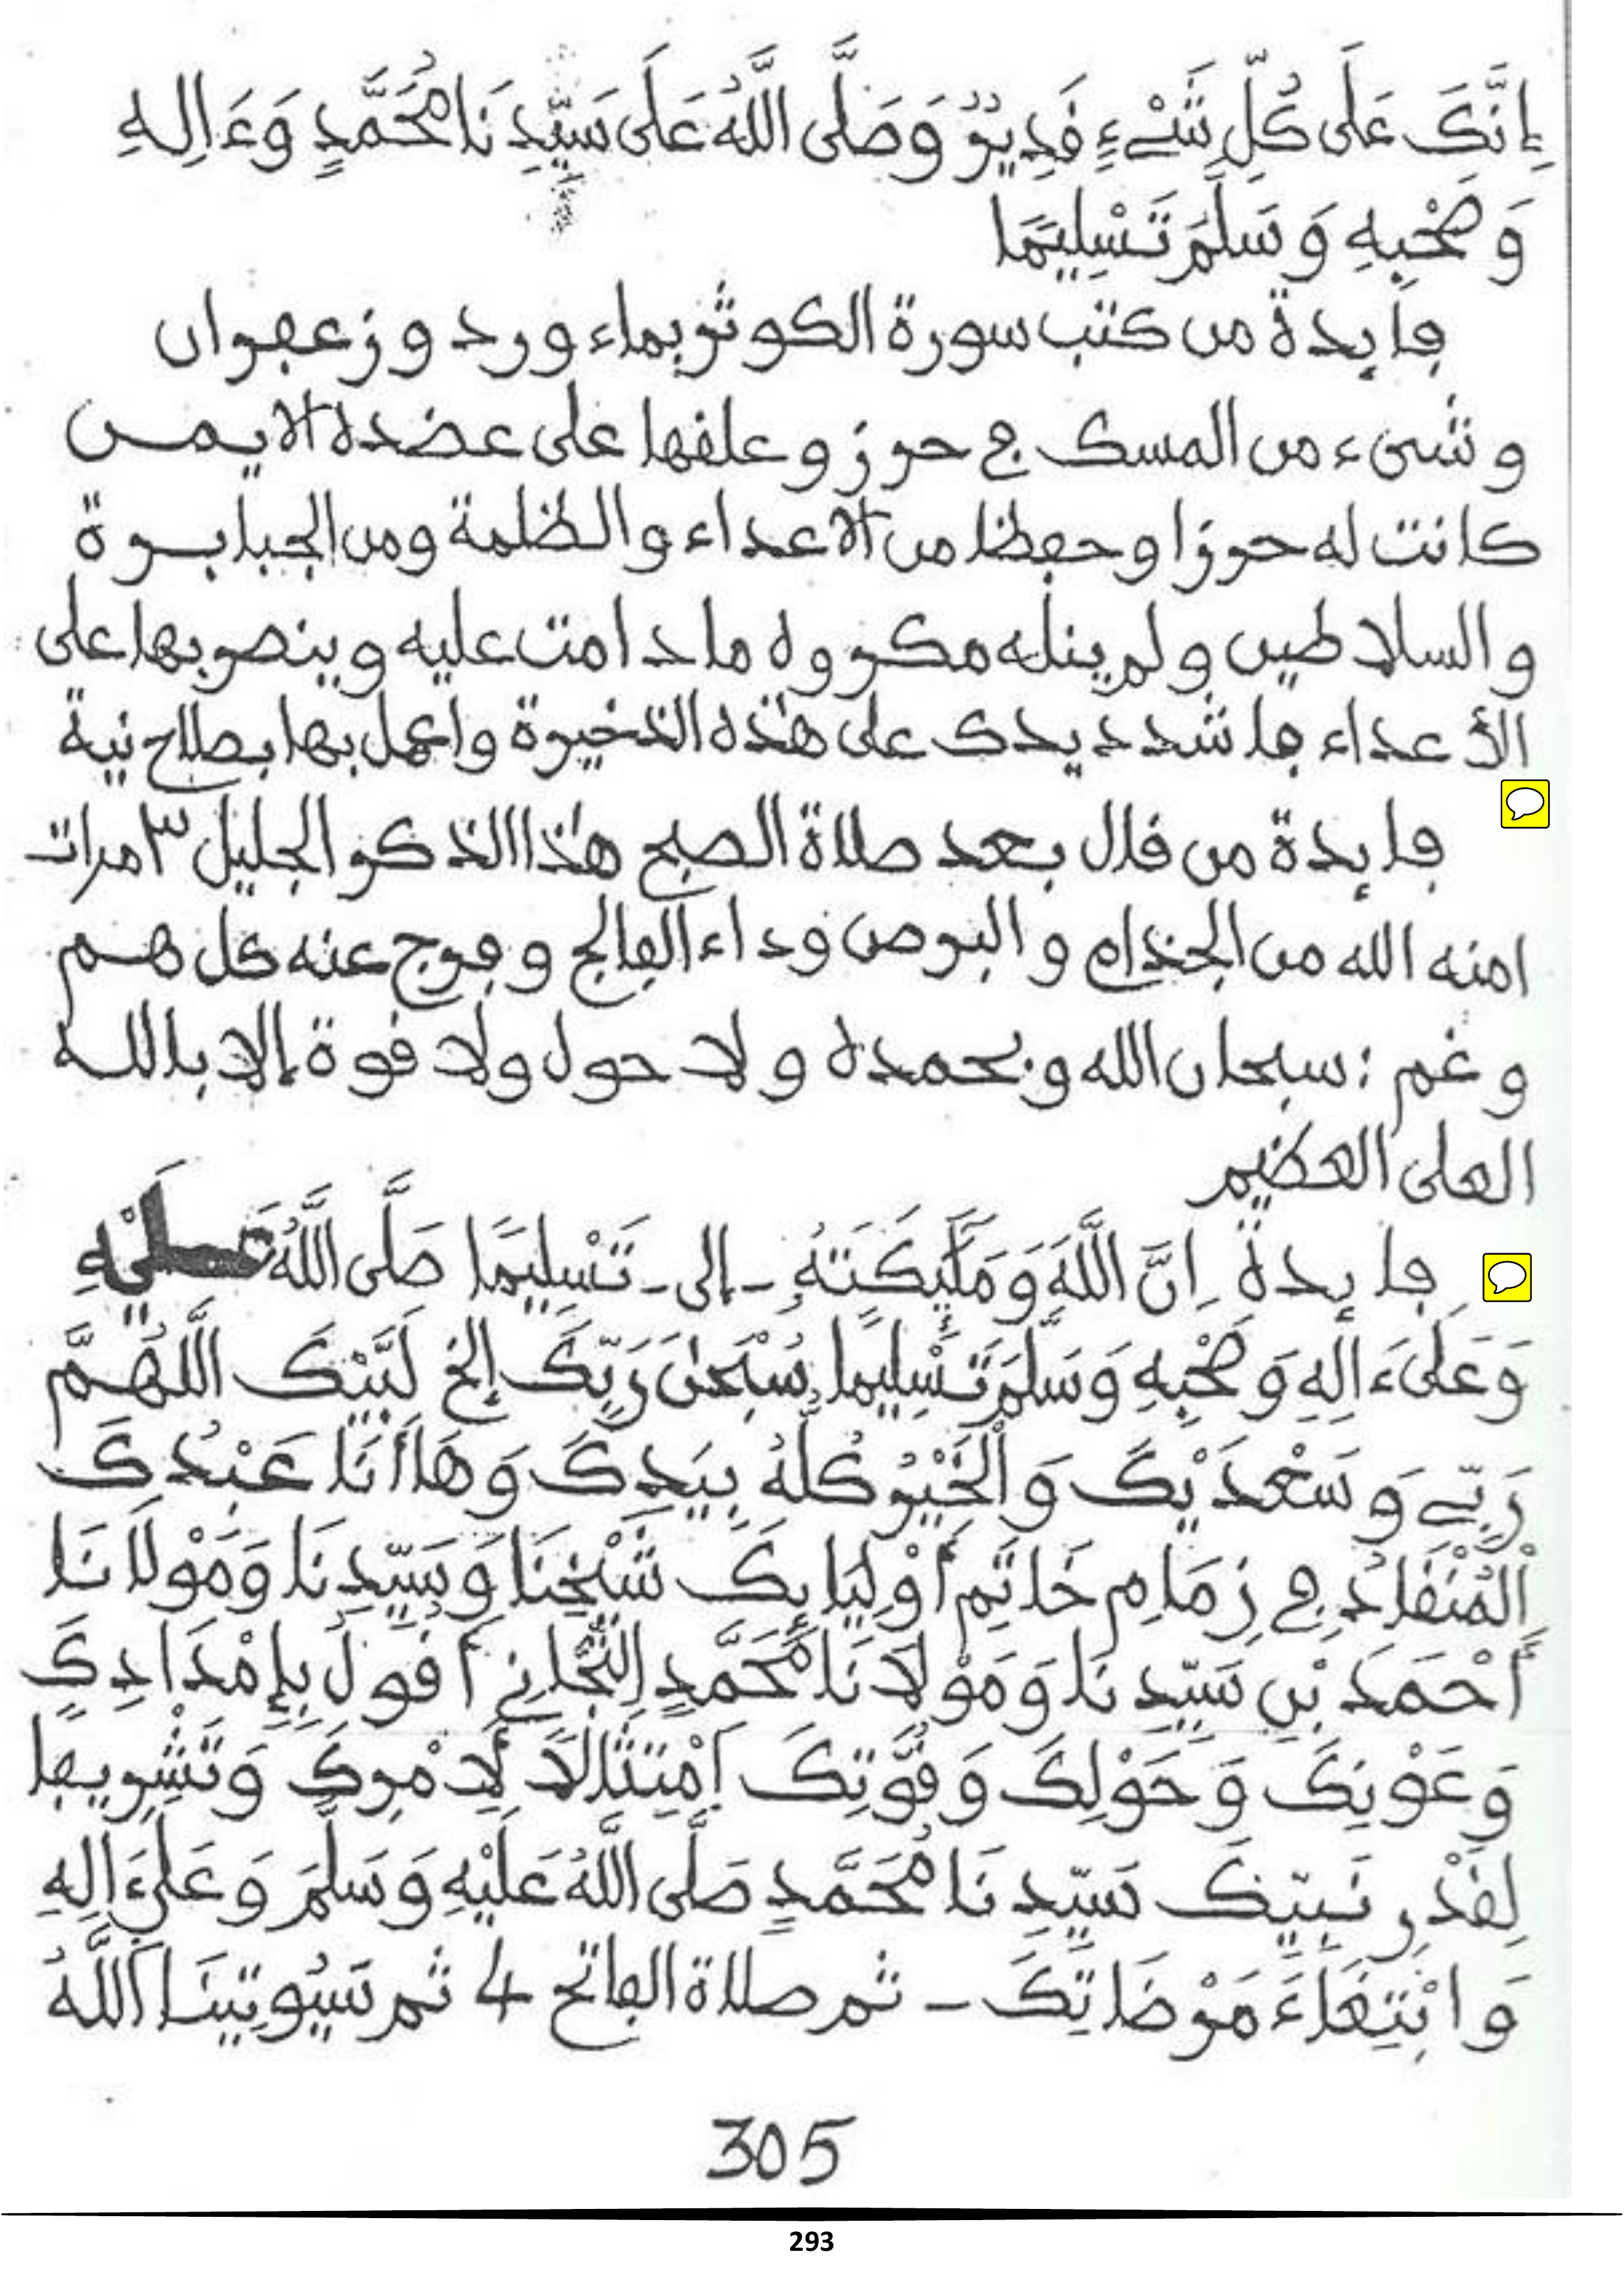 إِنَّكَ عَلَى كُلِّ شَيْءٍ قَدِيرٌ وَصَلَّى اللَّهُ عَلَى سَيِّدِنَا مُحَمَّدٍ وَءَالِهِ
وَصَحْبِهِ وَسَلَّمَ تَسْلِيمًا
فايدة من كتب سورة الكوثر بماء ورد وزعفران
وشىء من المسك في حرز وعلقها على عضده الايمن
كانت له حرزا وحفظا من الاعداء والظلمة ومن الجبابرة
والسلاطين ولم ينله مكروه ما دامت عليه وينصر بها على
الأعداء فاشدد يدك على هذه الذخيرة واعمل بها بصلاح نية
فايدة من قال بعد صلاة الصبح هذا الذكر الجليل ٣ مرات
امنه الله من الجذام والبرص وداء الفالج وفرج عنه كل هم
وغم : سبحان الله وبحمده ولا حول ولا قوة إلا بالله
العلى العظيم
فايدة إِنَّ اللَّهَ وَمَلَٰٓئِكَتَهُ - إلى - تَسْلِيمًا صَلَّى اللَّهُ عَلَيْهِ
وَعَلَىٰ ءَالِهِ وَصَحْبِهِ وَسَلَّمَ تَسْلِيمًا سُبْحَٰنَ رَبِّكَ إلخ لَبَّيْكَ اللَّهُمَّ
رَبِّي وَسَعْدَيْكَ وَالْخَيْرُ كُلُّهُ بِيَدِكَ وَهَا أَنَا عَبْدُكَ
الْمُنْقَادُ فِي زِمَامِ خَاتِمِ أَوْلِيَائِكَ شَيْخِنَا وَسَيِّدِنَا وَمَوْلَانَا
أَحْمَدَ بْنِ سَيِّدِنَا وَمَوْلَانَا مُحَمَّدٍ التِّجَانِي أَقُولُ بِإِمْدَادِكَ
وَعَوْنِكَ وَحَوْلِكَ وَقُوَّتِكَ اِمْتِثَالًا لِأَمْرِكَ وَتَشْرِيفًا
لِقَدْرِ نَبِيِّكَ سَيِّدِنَا مُحَمَّدٍ صَلَّى اللَّهُ عَلَيْهِ وَسَلَّمَ وَعَلَىٰ ءَالِهِ
وَابْتِغَاءَ مَرْضَاتِكَ - ثم صلاة الفاتح 4 ثم سَيُوتِينَا اللَّهُ
305
293